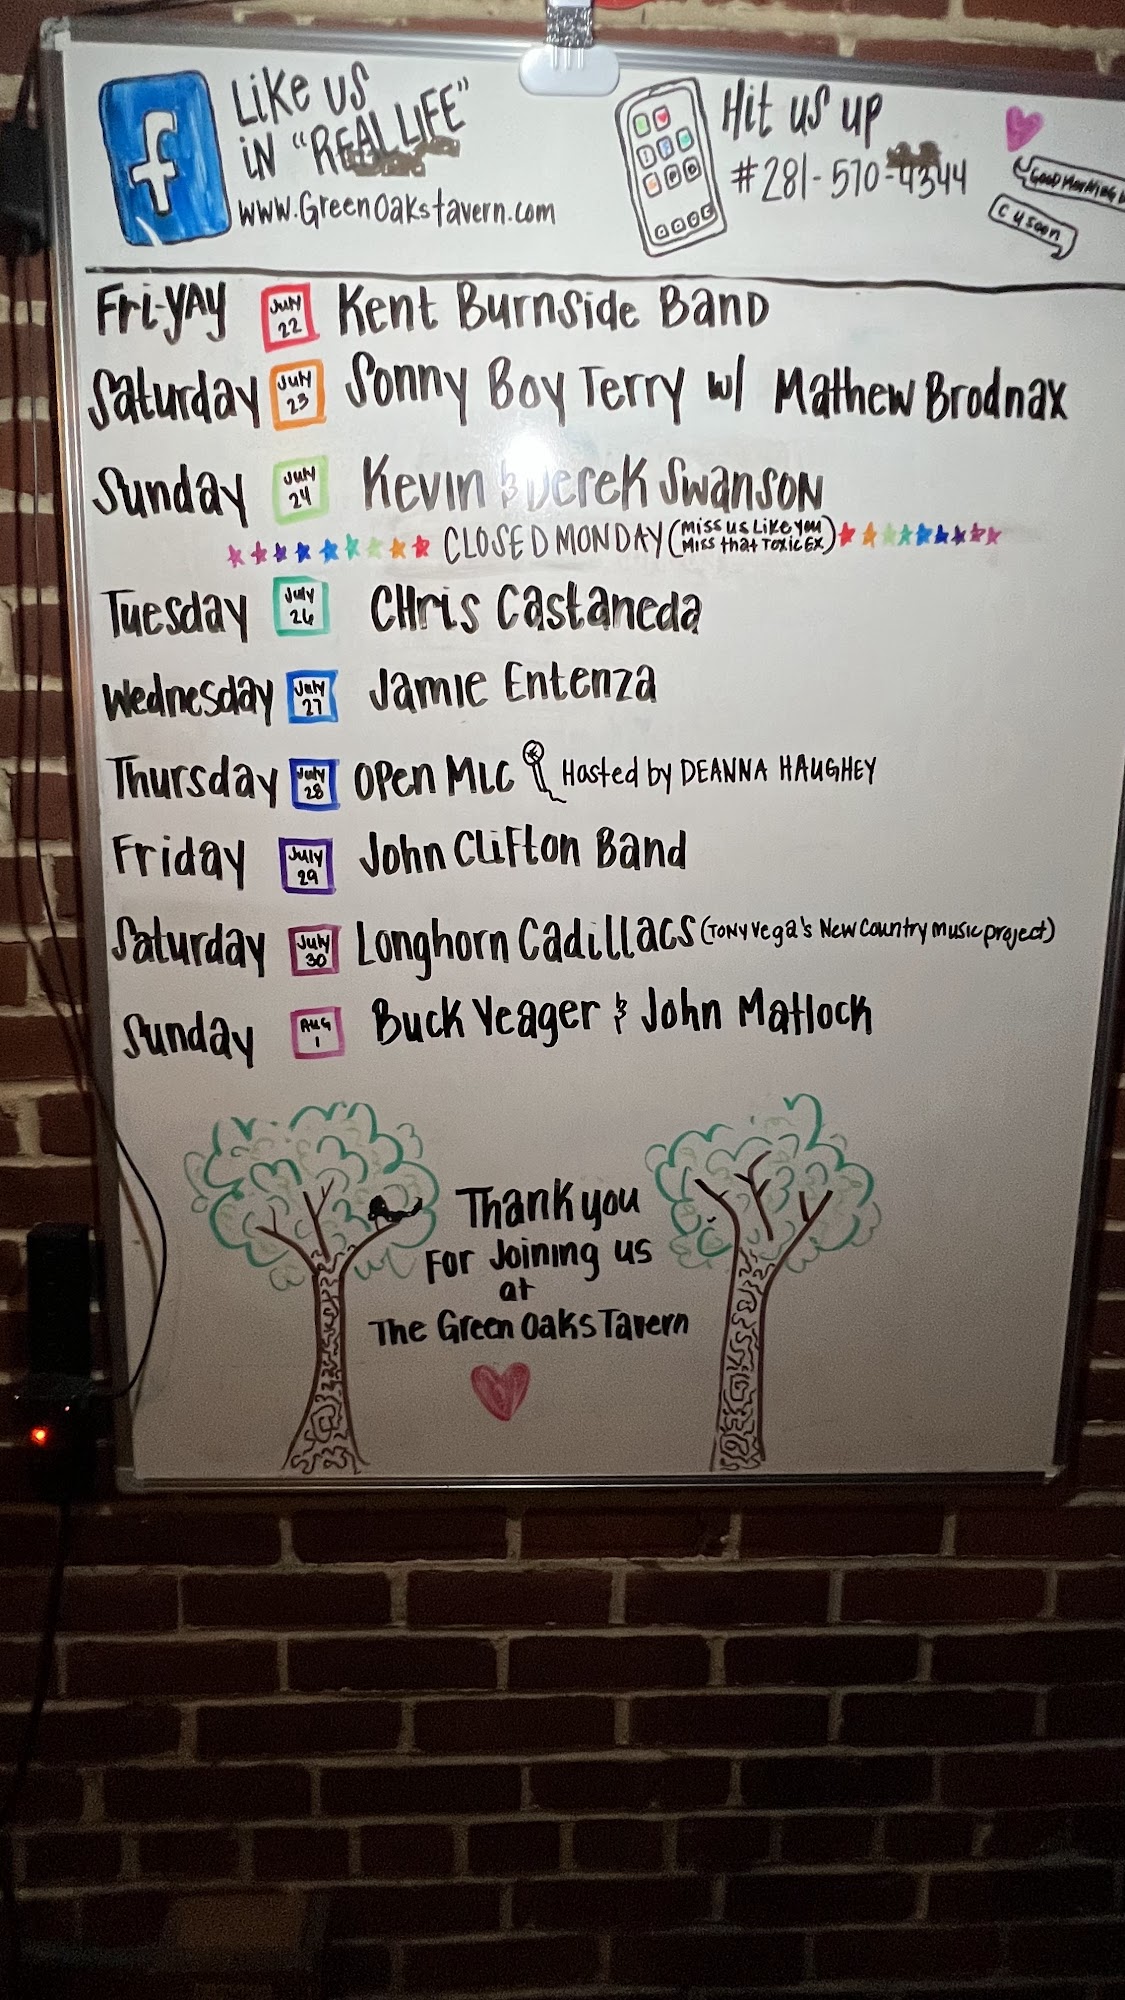 f
Like us
in "REAL LIFE"
www.GreenOakstavern.com
Hit us up
#281-570-4344
GOOD MORNING
C U soon
Fri-YAY July 22 Kent Burnside Band
Saturday July 23 Sonny Boy Terry w/ Mathew Brodnax
Sunday July 24 Kevin & Derek Swanson
CLOSED MONDAY (Miss us Like you Miss that Toxic EX)
Tuesday July 26 CHris Castaneda
Wednesday July 27 Jamie Entenza
Thursday July 28 Open Mic Hosted by DEANNA HAUGHEY
Friday July 29 John Clifton Band
Saturday July 30 Longhorn Cadillacs (Tony Vega's New Country music project)
Sunday Aug 1 Buck Yeager & John Matlock
Thank you
For Joining us
at
The Green Oaks Tavern